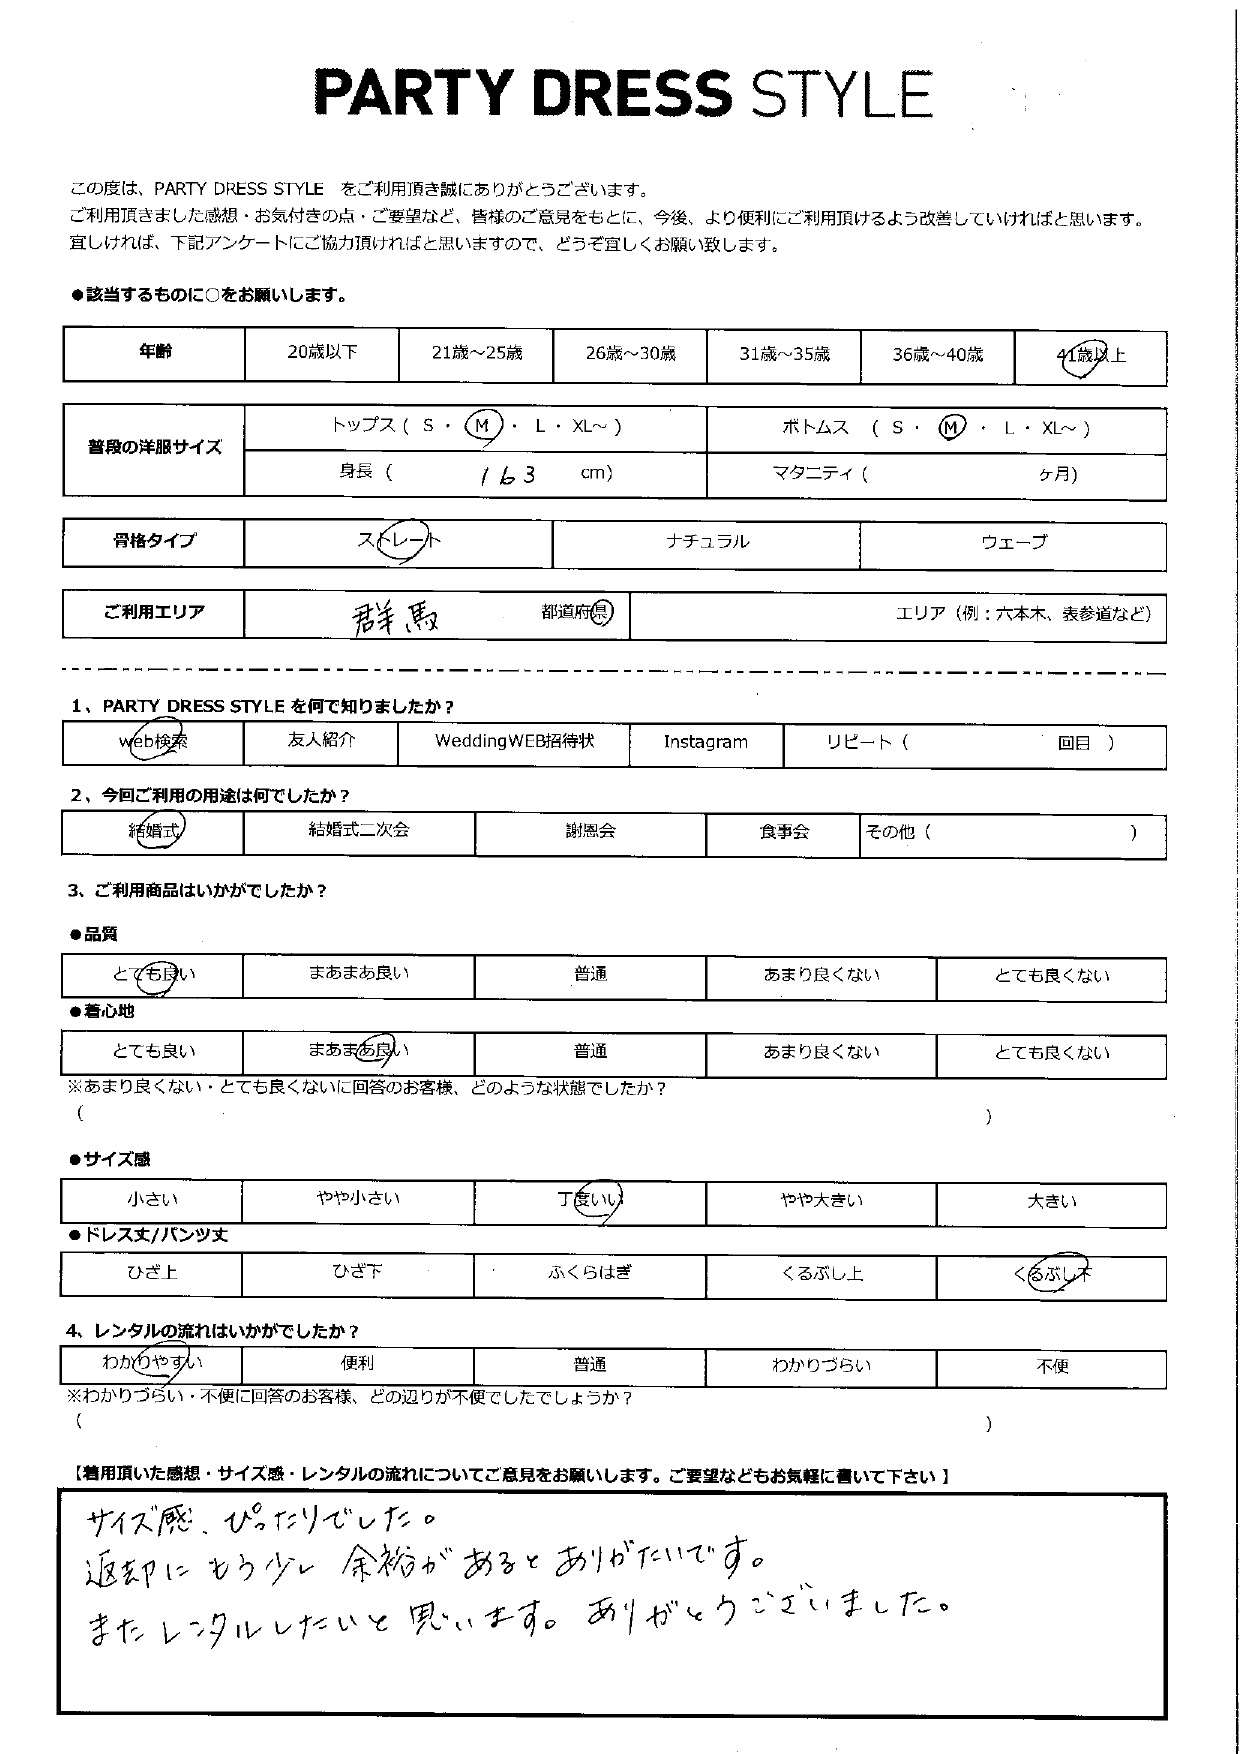 PARTY DRESS STYLE
この度は、PARTY DRESS STYLE　をご利用頂き誠にありがとうございます。
ご利用頂きました感想・お気付きの点・ご要望など、皆様のご意見をもとに、今後、より便利にご利用頂けるよう改善していければと思います。
宜しければ、下記アンケートにご協力頂ければと思いますので、どうぞ宜しくお願い致します。
●該当するものに○をお願いします。
年齢 20歳以下 21歳～25歳 26歳～30歳 31歳～35歳 36歳～40歳 41歳以上
普段の洋服サイズ
トップス ( S ・ M ・ L ・ XL～ ) ボトムス ( S ・ M ・ L ・ XL～ )
身長 ( 163 cm) マタニティ ( ヶ月)
骨格タイプ ストレート ナチュラル ウェーブ
ご利用エリア 群馬 都道府県 エリア（例：六本木、表参道など）
1、PARTY DRESS STYLE を何で知りましたか？
web検索 友人紹介 WeddingWEB招待状 Instagram リピート ( 回目 )
2、今回ご利用の用途は何でしたか？
結婚式 結婚式二次会 謝恩会 食事会 その他 ( )
3、ご利用商品はいかがでしたか？
●品質
とても良い まあまあ良い 普通 あまり良くない とても良くない
●着心地
とても良い まあまあ良い 普通 あまり良くない とても良くない
※あまり良くない・とても良くないに回答のお客様、どのような状態でしたか？
( )
●サイズ感
小さい やや小さい 丁度いい やや大きい 大きい
●ドレス丈/パンツ丈
ひざ上 ひざ下 ふくらはぎ くるぶし上 くるぶし下
4、レンタルの流れはいかがでしたか？
わかりやすい 便利 普通 わかりづらい 不便
※わかりづらい・不便に回答のお客様、どの辺りが不便でしたでしょうか？
( )
【着用頂いた感想・サイズ感・レンタルの流れについてご意見をお願いします。ご要望などもお気軽に書いて下さい】
サイズ感、ぴったりでした。
返却にもう少し余裕があるとありがたいです。
またレンタルしたいと思います。ありがとうございました。